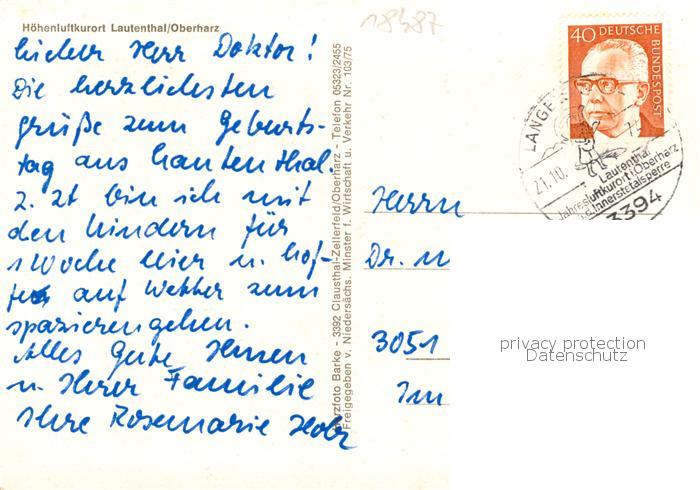 Höhenluftkurort Lautenthal/Oberharz
18487
lieber Herr Doktor!
Die herzlichsten
grüße zum Geburts-
tag aus Lautenthal.
z. Zt bin ich mit
den Kindern für
1 Woche hier u. hof-
fe auf Wetter zum
spazierengehen.
Alles Gute Ihnen
u. Ihrer Familie
Ihre Rosemarie
Harzfoto Barke - 3392 Clausthal-Zellerfeld/Oberharz - Telefon 05323/2455
Freigegeben v. Niedersächs. Minster f. Wirtschaft u. Verkehr Nr. 103/75
40 DEUTSCHE
BUNDESPOST
LANGE
21.10.
Lautenthal
Jahresluftkurort i. Oberharz
Innerstetalsperre
3394
Herrn
Dr.
3051
Im
privacy protection
Datenschutz